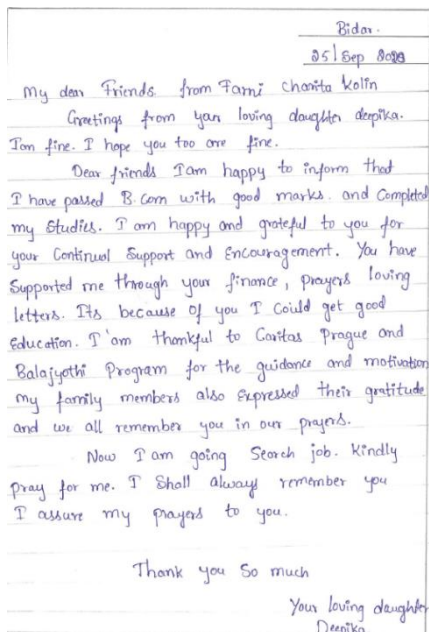 Bidar.
25/Sep
My dear Friends from Farni charita Kolin
Greetings from your loving daughter deepika.
Iam fine. I hope you too are fine.
Dear friends Iam happy to inform that
I have passed B.com with good marks. and Completed
my Studies. I am happy and grateful to you for
your Continual Support and Encouragement. You have
Supported me through your finance, prayers loving
letters. Its because of you I Could get good
Education. I'am thankful to Caritas Prague and
Balajyothi Program for the guidance and motivation
my family members also Expressed their gratitude
and we all remember you in our prayers.
Now I am going Search job. Kindly
pray for me. I Shall always remember you
I assure my prayers to you.
Thank you So much
Your loving daughter
Deepika